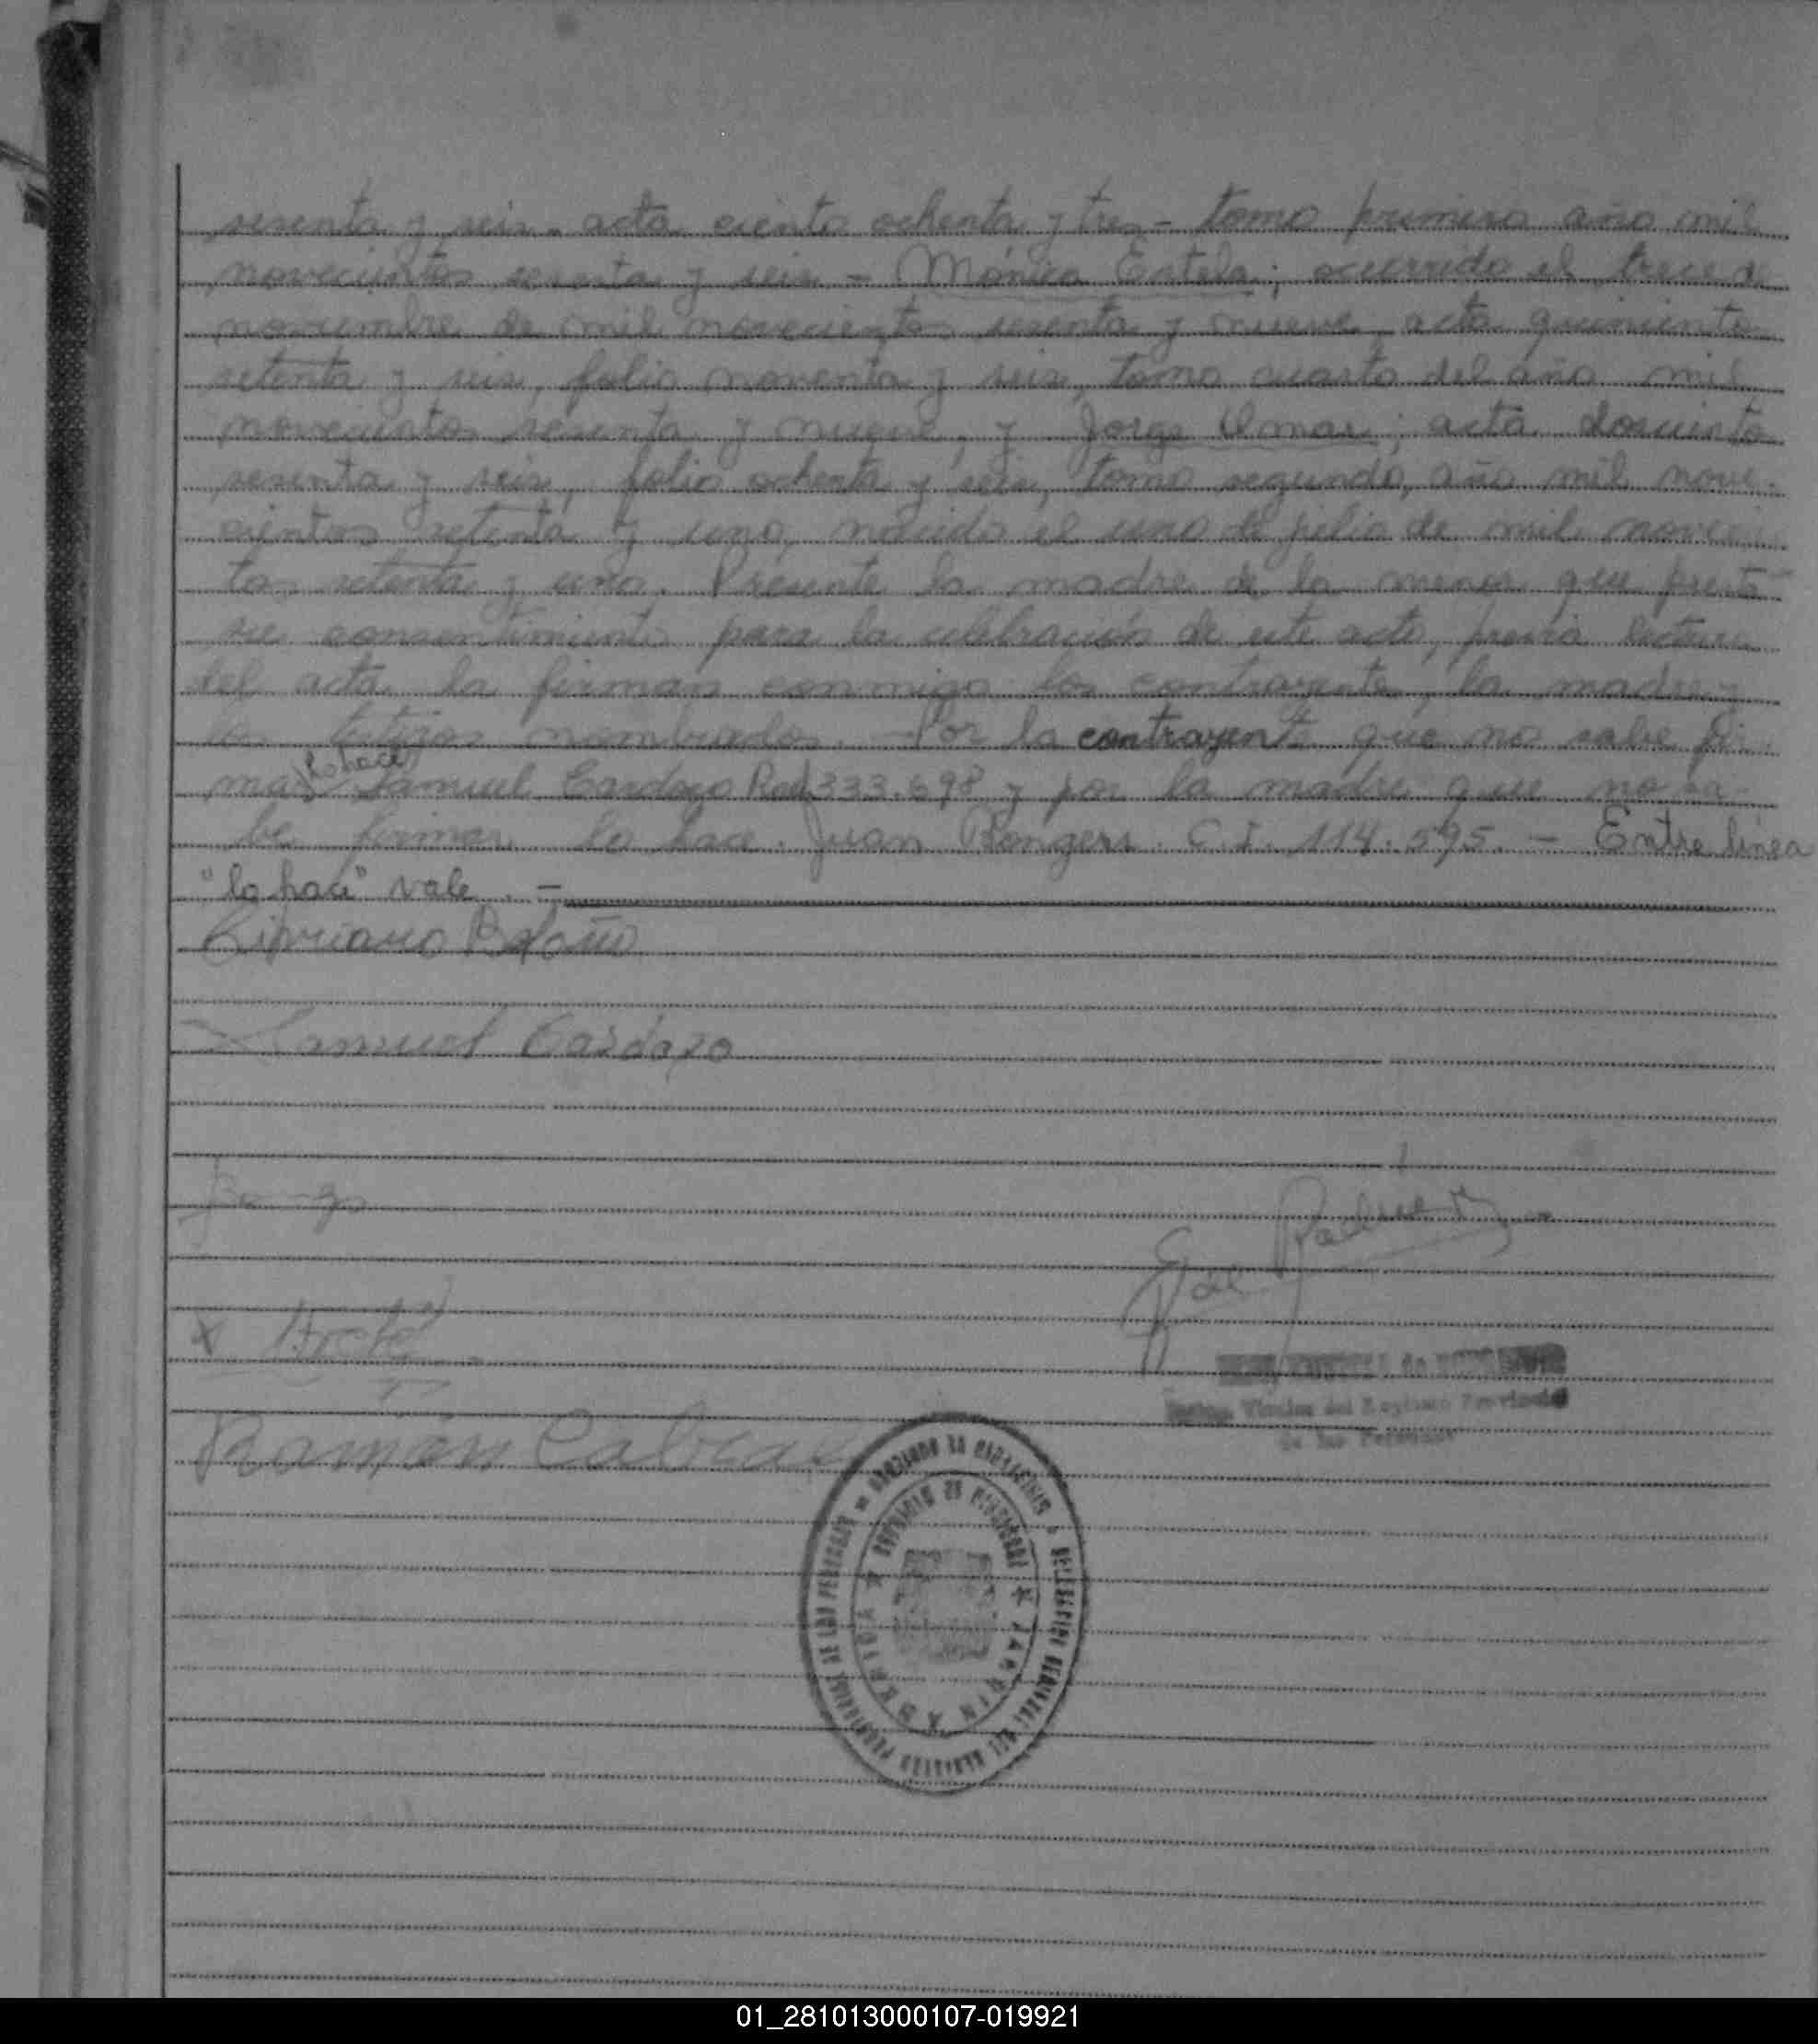 sesenta y seis - acta ciento ochenta y tres - tomo primero año mil
novecientos sesenta y seis - Mónica Estela; ocurrido el trece de
noviembre de mil novecientos sesenta y nueve, acta quinientos
setenta y seis, folio noventa y seis, tomo cuarto del año mil
novecientos sesenta y nueve, y Jorge Omar; acta doscientos
sesenta y seis, folio ochenta y seis, tomo segundo, año mil nove-
cientos setenta y uno, nacido el uno de julio de mil novecien
tos setenta y uno. Presente la madre de la menor que presta
su consentimiento para la celebración de este acto, previa lectura
del acta la firman conmigo los contrayentes, la madre y
los testigos nombrados. Por la contrayente que no sabe fir
mar lo hace Samuel Cardozo Red 333.698 y por la madre que no sa-
be firmar lo hace Juan Rongers. C.I. 114.595. - Entre línea
"lo hace" vale. -
Cipriano
Samuel Cardozo
Ramón Cabral
01_281013000107-019921